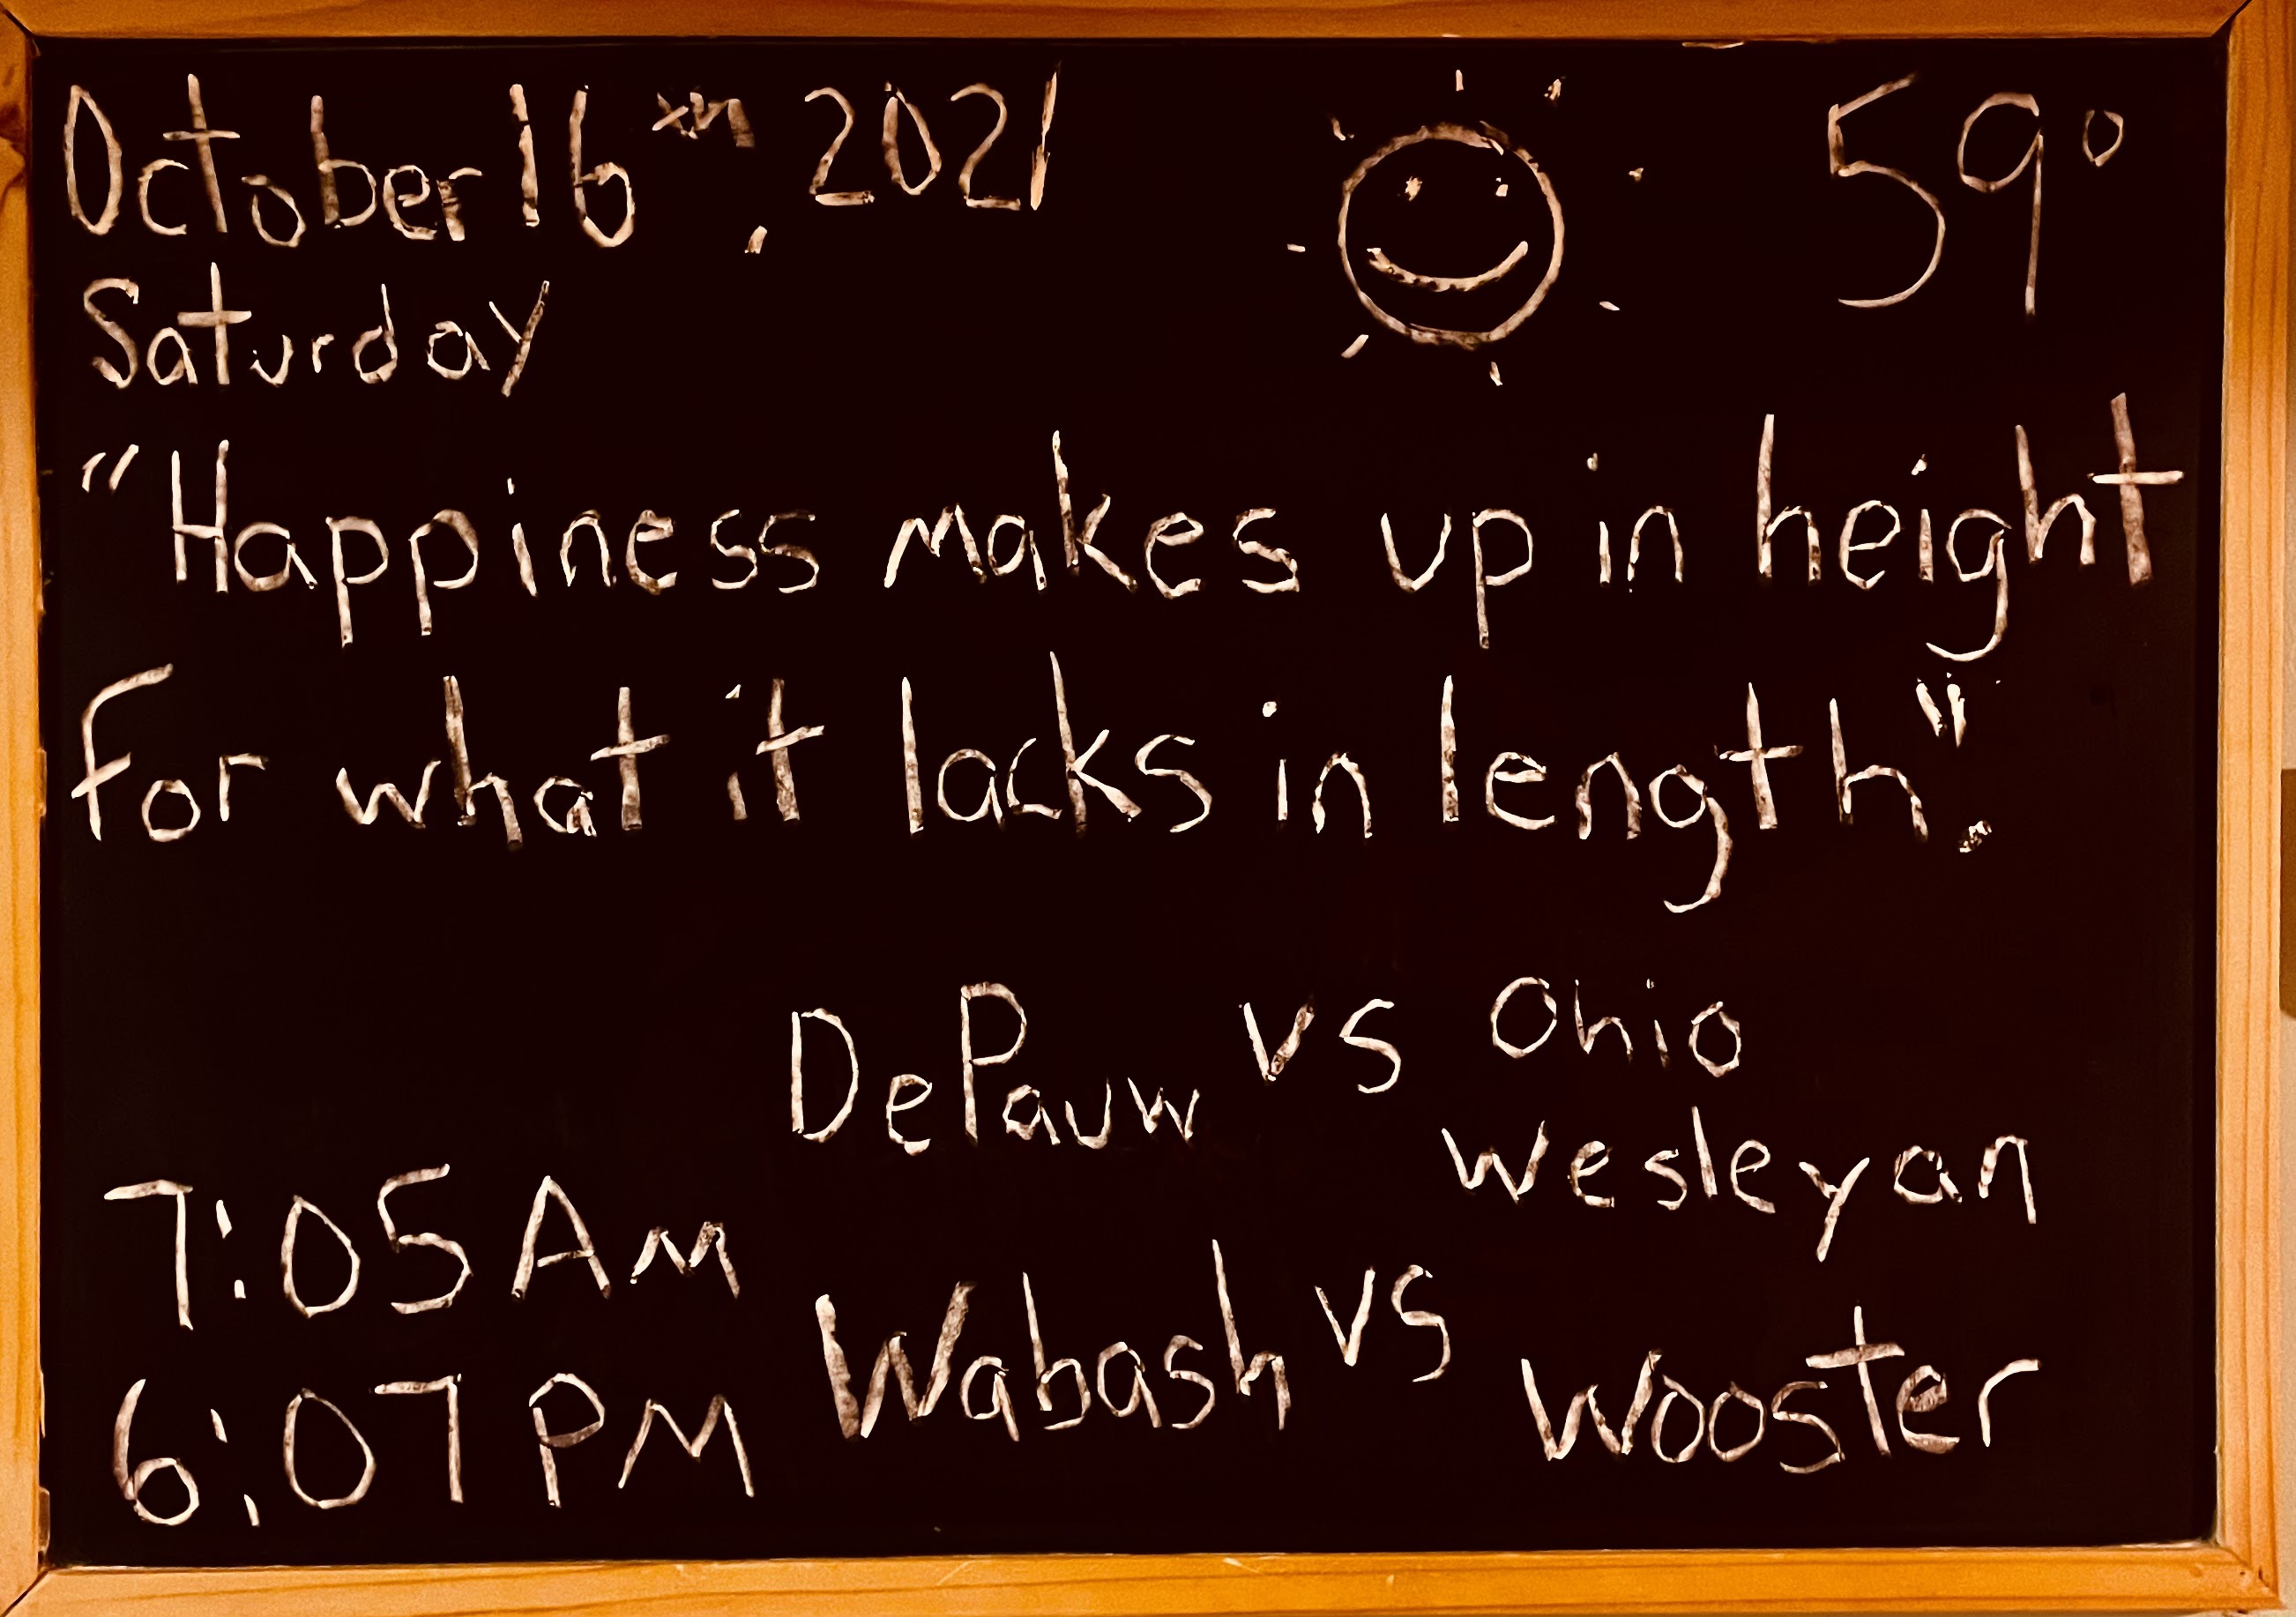 October 16th, 2021
59°
Saturday
"Happiness makes up in height
for what it lacks in length".
DePauw vs Ohio
Wesleyan
7:05 AM
Wabash vs
Wooster
6:07 PM